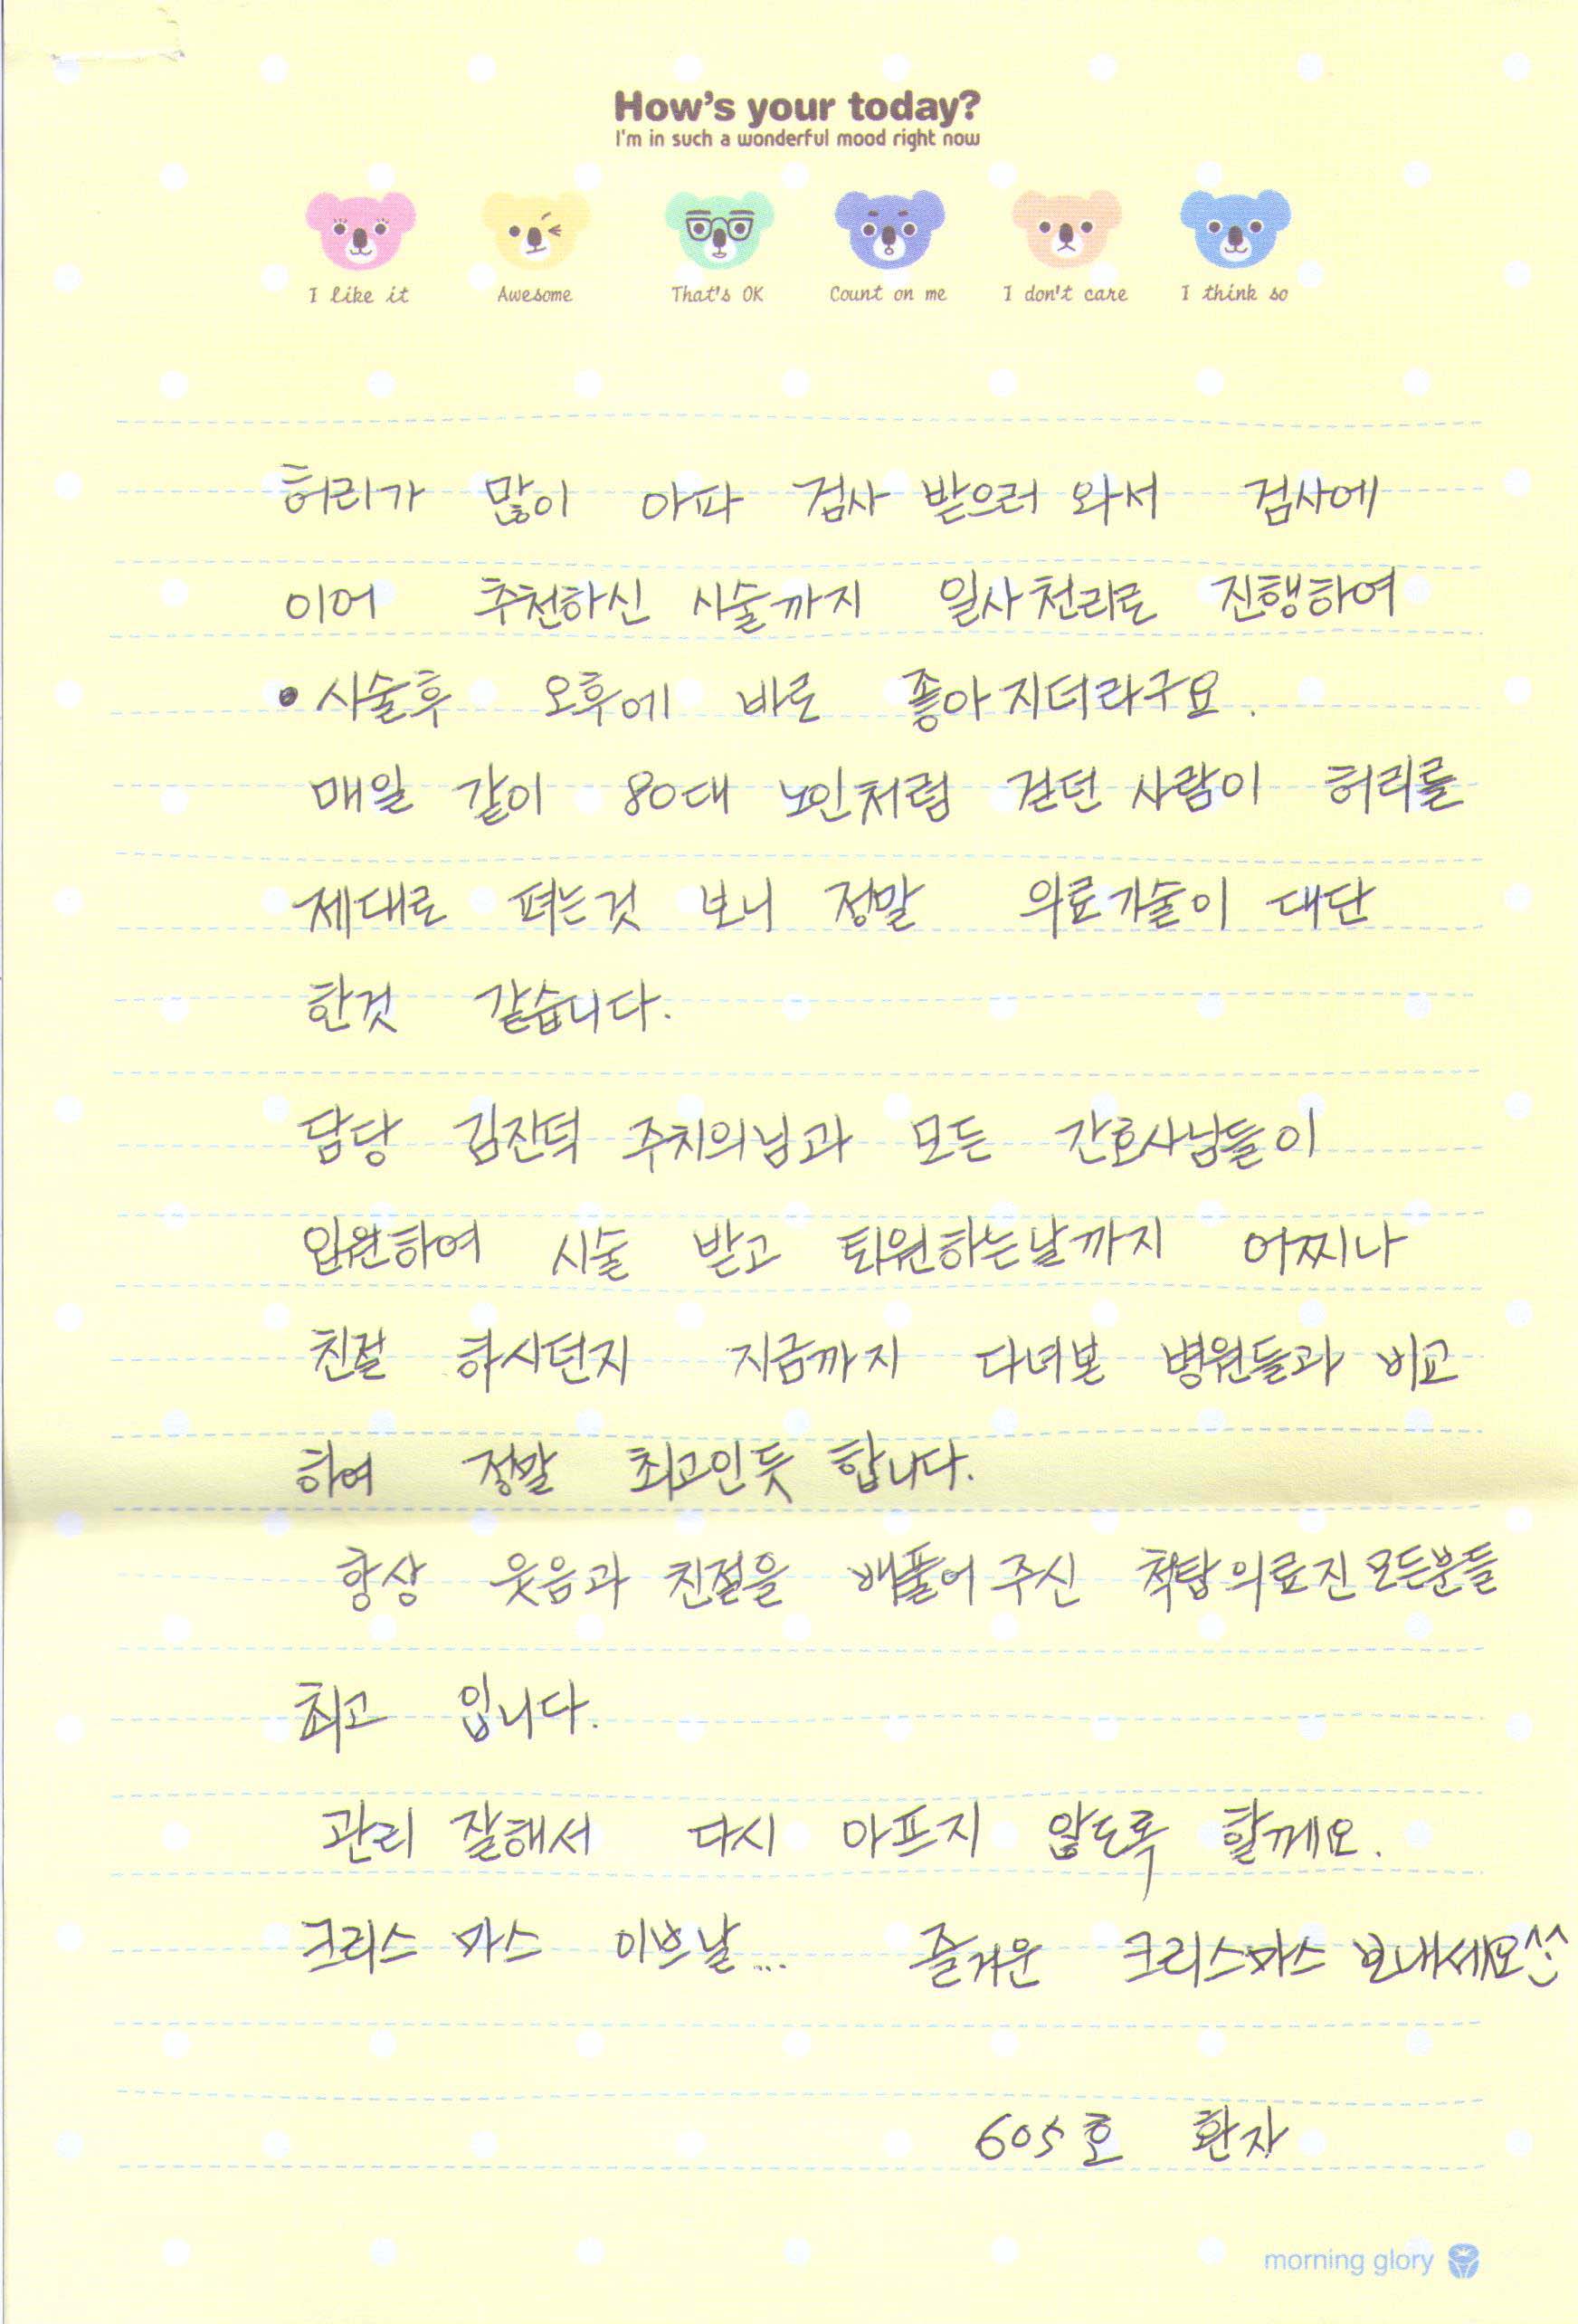 How's your today?
I'm in such a wonderful mood right now
I like it Awesome That's OK Count on me I don't care I think so
허리가 많이 아파 검사 받으러 와서 검사에
이어 추천하신 시술까지 일사천리로 진행하여
• 시술후 오후에 바로 좋아지더라구요.
매일 같이 80대 노인처럼 걷던 사람이 허리를
제대로 펴는것 보니 정말 의료기술이 대단
한것 같습니다.
담당 김잔덕 주치의님과 모든 간호사님들이
입원하여 시술 받고 퇴원하는날까지 어찌나
친절 하시던지 지금까지 다녀본 병원들과 비교
하여 정말 최고인듯 합니다.
항상 웃음과 친절을 배풀어 주신 척탑의료진 모든분들
최고 입니다.
관리 잘해서 다시 아프지 않도록 할께요.
크리스 마스 이브날... 즐거운 크리스마스 보내세요^^
605호 환자
morning glory